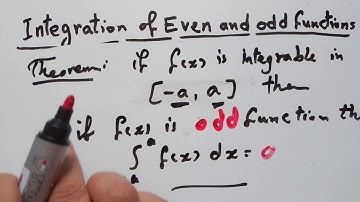 Integration of Even and odd functions
Theorem: if f(x) is integrable in
[-a, a] then
if f(x) is odd function th
∫ᵃ f(x) dx = 0